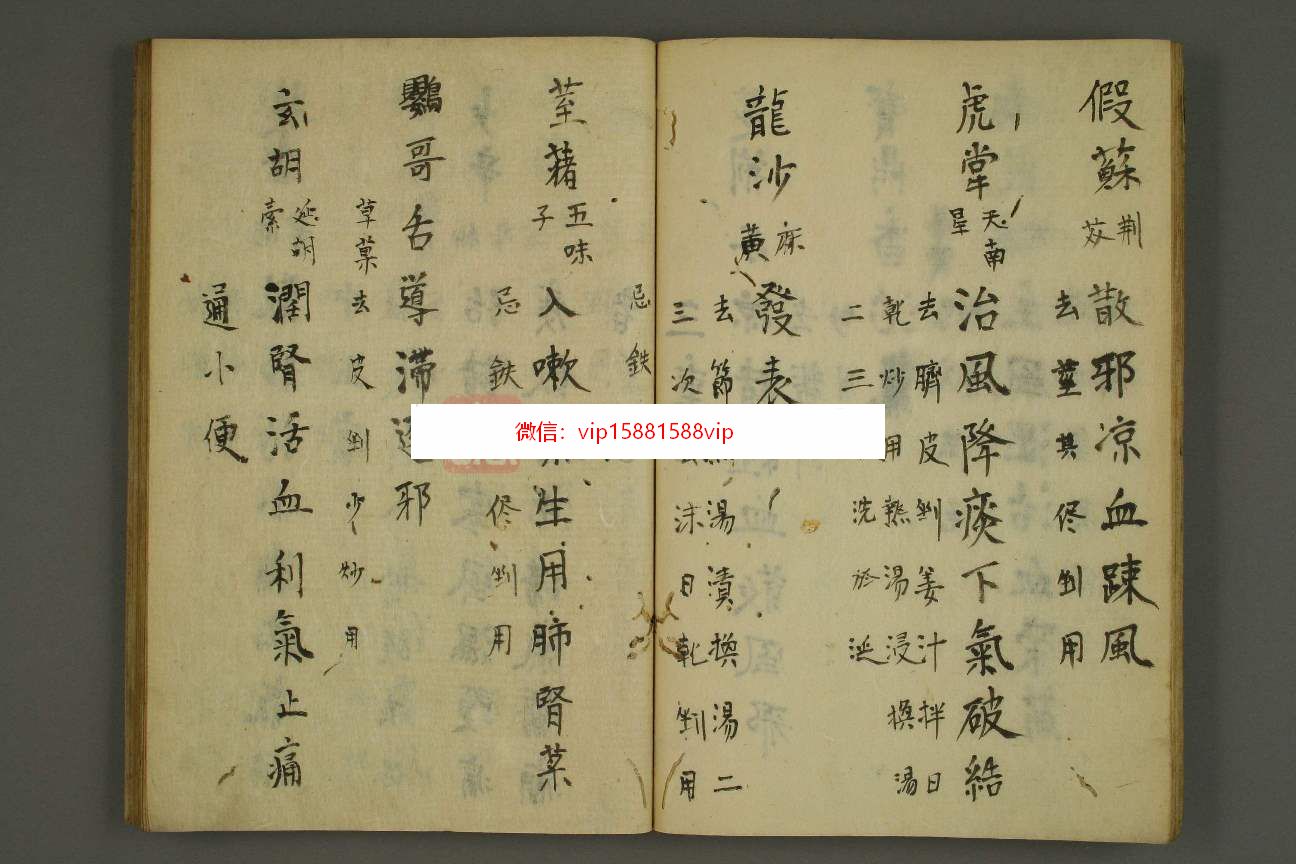 假蘇 荊芥 散邪凉血踈風
去莖其侭剉用
虎掌 天南星 治風降痰下氣破結
去臍皮剉姜汁拌日
乾炒 用熱湯浸換湯
二三 洗於涎
龍沙 麻黃 發表
去節 湯漬換湯二
三次 沫日乾剉用
忌鉄
荎藸 五味子 入嗽 生用肺腎菜
忌鉄 侭剉用
鸚哥舌導滯 邪
草菓去皮剉少炒用
玄胡 延胡索 潤腎活血利氣止痛
通小便
微信：vip15881588vip